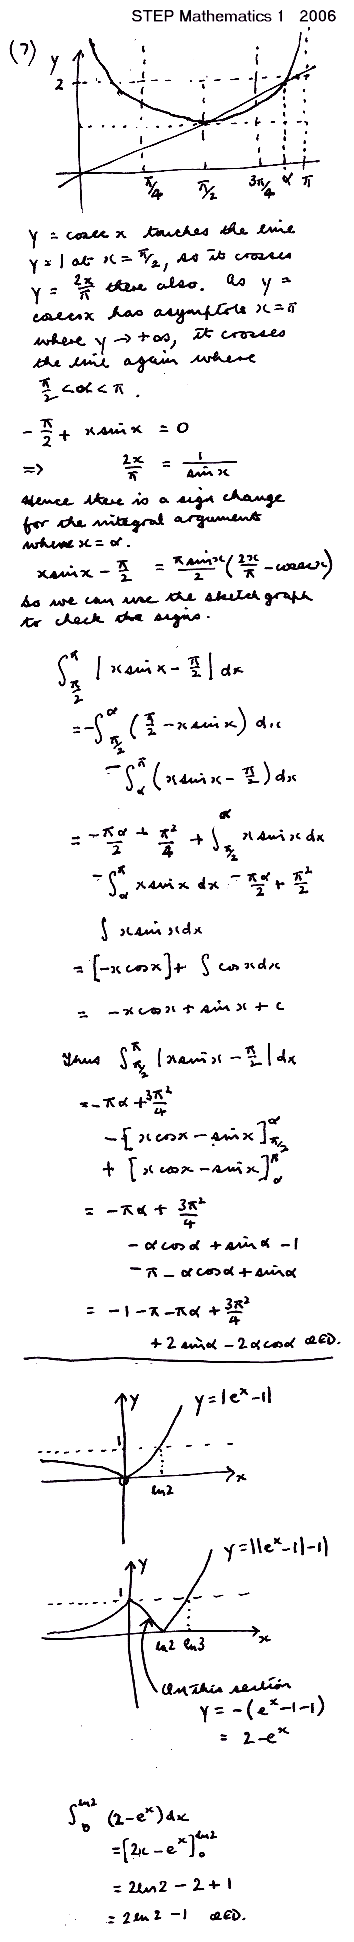 STEP Mathematics 1 2006
(7)
y
2
π/4 π/2 3π/4 α π
y = cosec x touches the line
y = 1 at x = π/2, so it crosses
y = 2x/π there also. As y =
cosec x has asymptote x = π
where y → +∞, it crosses
the line again where
π/2 < α < π.
- π/2 + x sin x = 0
⇒ 2x/π = 1/sin x
Hence there is a sign change
for the integral argument
where x = α.
x sin x - π/2 = π sin x/2 (2x/π - cosec x)
So we can use the sketch graph
to check the signs.
∫_{π/2}^{π} | x sin x - π/2 | dx
= -∫_{π/2}^{α} (π/2 - x sin x) dx
- ∫_{α}^{π} (x sin x - π/2) dx
= -πα/2 + π²/4 + ∫_{π/2}^{α} x sin x dx
- ∫_{α}^{π} x sin x dx - πα/2 + π²/2
∫ x sin x dx
= [-x cos x] + ∫ cos x dx
= -x cos x + sin x + c
Thus ∫_{π/2}^{π} | x sin x - π/2 | dx
= -πα + 3π²/4
- [x cos x - sin x]_{π/2}^{α}
+ [x cos x - sin x]_{α}^{π}
= -πα + 3π²/4
- α cos α + sin α - 1
- π - α cos α + sin α
= -1 - π - πα + 3π²/4
+ 2 sin α - 2α cos α QED.
y
y = |e^x - 1|
1
ln 2
x
y
y = ||e^x - 1| - 1|
1
ln 2 ln 3
x
On this section
y = -(e^x - 1 - 1)
= 2 - e^x
∫_0^{ln 2} (2 - e^x) dx
= [2x - e^x]_0^{ln 2}
= 2 ln 2 - 2 + 1
= 2 ln 2 - 1 QED.